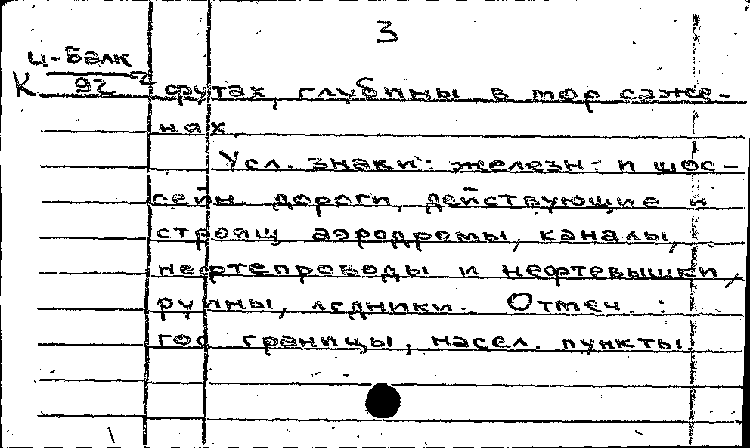 3
Ц-Балк
К 92 2
футах, глубины в мор саже-
нах.
Усл. знаки: железн. и шос-
сейн. дороги, действующие и
строящ аэродромы, каналы,
нефтепроводы и нефтевышки,
руины, ледники. Отмеч.:
гос границы, насел. пункты